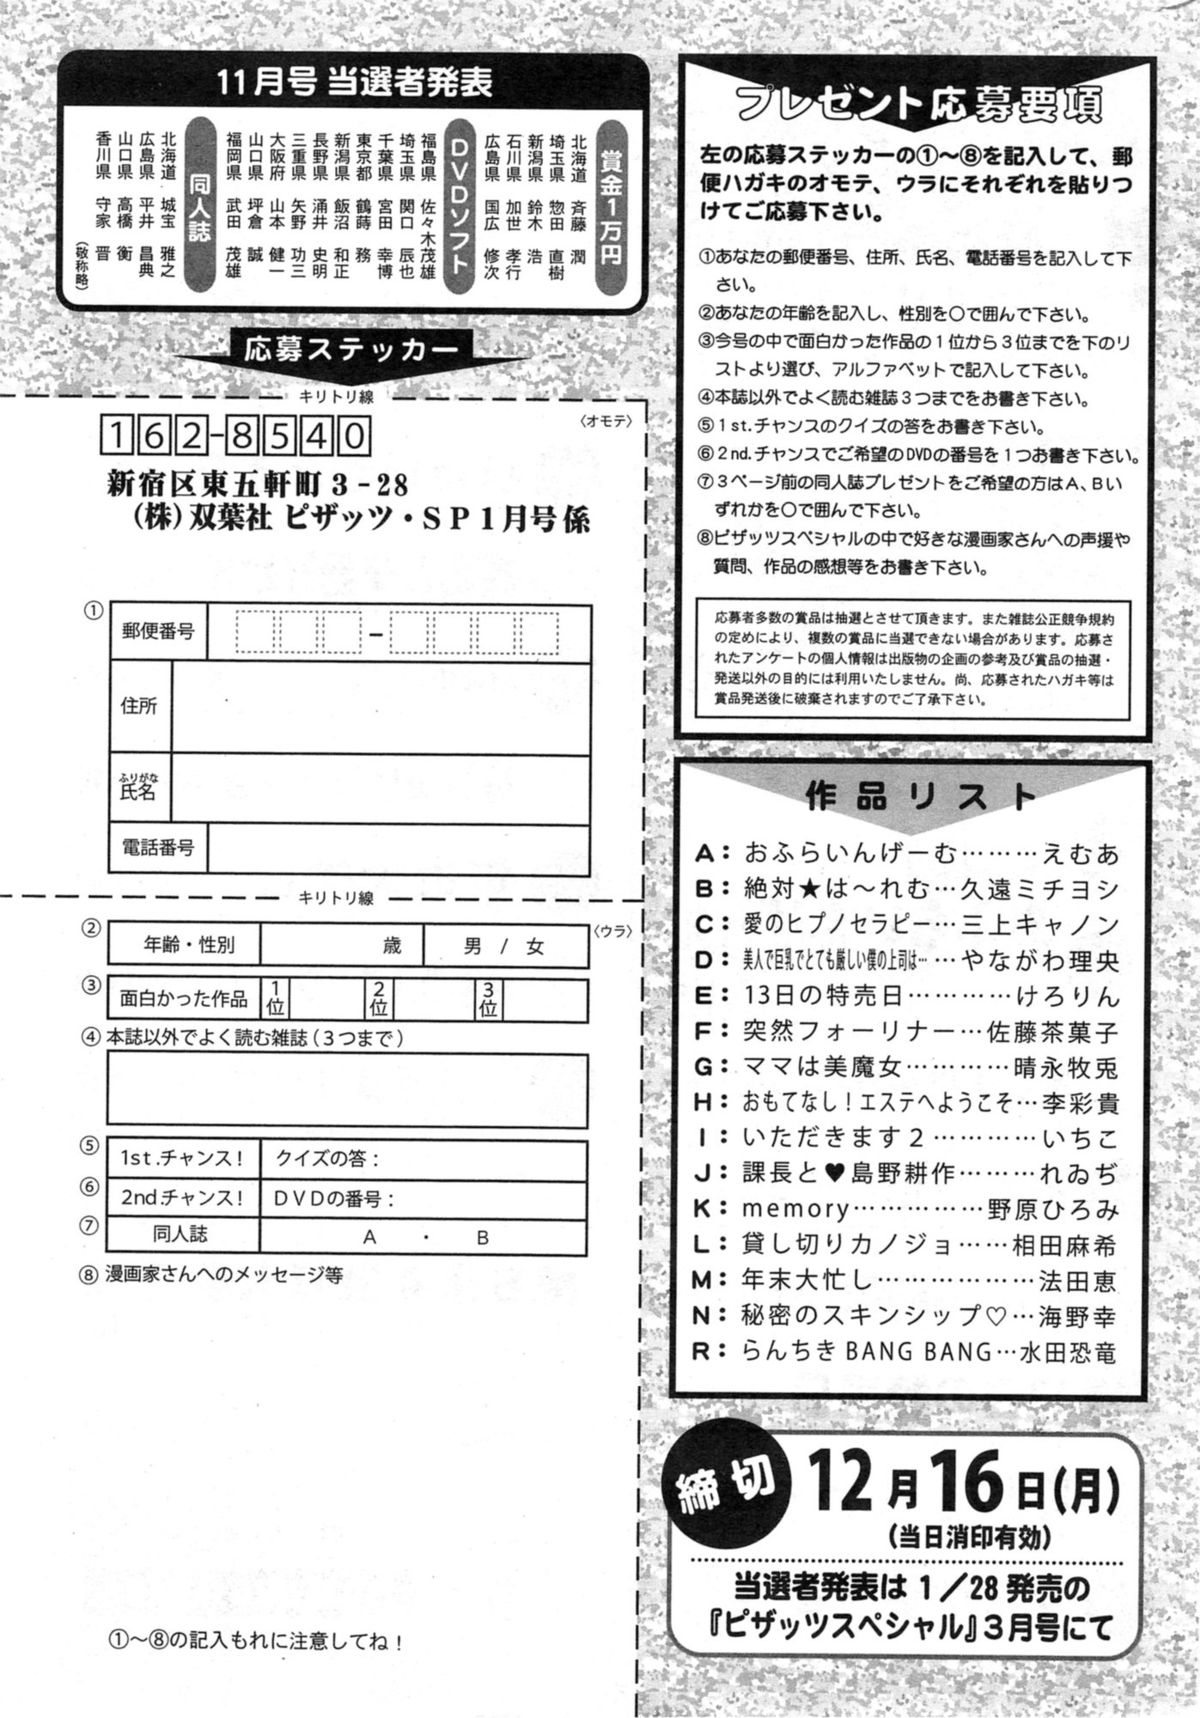 11月号 当選者発表
賞金1万円
北海道 斉藤 潤
埼玉県 惣田 直樹
新潟県 鈴木 浩
石川県 加世 孝行
広島県 国広 修次
DVDソフト
福島県 佐々木茂雄
埼玉県 関口 辰也
千葉県 宮田 幸博
東京都 鶴蒔 務
新潟県 飯沼 和正
長野県 涌井 史明
三重県 矢野 功三
大阪府 山本 健一
山口県 坪倉 誠
福岡県 武田 茂雄
同人誌
北海道 城宝 雅之
広島県 平井 昌典
山口県 高橋 衡
香川県 守家 晋
(敬称略)
応募ステッカー
キリトリ線
〈オモテ〉
162-8540
新宿区東五軒町3-28
(株)双葉社 ピザッツ・SP1月号係
①
郵便番号 -
住所
ふりがな
氏名
電話番号
キリトリ線
〈ウラ〉
② 年齢・性別 歳 男 / 女
③ 面白かった作品 1位 2位 3位
④ 本誌以外でよく読む雑誌(3つまで)
⑤ 1st.チャンス! クイズの答:
⑥ 2nd.チャンス! DVDの番号:
⑦ 同人誌 A ・ B
⑧ 漫画家さんへのメッセージ等
①〜⑧の記入もれに注意してね!
プレゼント応募要項
左の応募ステッカーの①〜⑧を記入して、郵
便ハガキのオモテ、ウラにそれぞれを貼りつ
けてご応募下さい。
①あなたの郵便番号、住所、氏名、電話番号を記入して下
さい。
②あなたの年齢を記入し、性別を○で囲んで下さい。
③今号の中で面白かった作品の1位から3位までを下のリ
ストより選び、アルファベットで記入して下さい。
④本誌以外でよく読む雑誌3つまでをお書き下さい。
⑤1st.チャンスのクイズの答をお書き下さい。
⑥2nd.チャンスでご希望のDVDの番号を1つお書き下さい。
⑦3ページ前の同人誌プレゼントをご希望の方はA、Bい
ずれかを○で囲んで下さい。
⑧ピザッツスペシャルの中で好きな漫画家さんへの声援や
質問、作品の感想等をお書き下さい。
応募者多数の賞品は抽選とさせて頂きます。また雑誌公正競争規約
の定めにより、複数の賞品に当選できない場合があります。応募さ
れたアンケートの個人情報は出版物の企画の参考及び賞品の抽選・
発送以外の目的には利用いたしません。尚、応募されたハガキ等は
賞品発送後に破棄されますのでご了承下さい。
作品リスト
A:おふらいんげーむ………えむあ
B:絶対★は〜れむ…久遠ミチヨシ
C:愛のヒプノセラピー…三上キャノン
D:美人で巨乳でとても厳しい僕の上司は…やながわ理央
E:13日の特売日…………けろりん
F:突然フォーリナー…佐藤茶菓子
G:ママは美魔女…………晴永牧兎
H:おもてなし!エステへようこそ…李彩貴
I:いただきます2…………いちこ
J:課長と♥島野耕作………れゐぢ
K:memory……………野原ひろみ
L:貸し切りカノジョ……相田麻希
M:年末大忙し………………法田恵
N:秘密のスキンシップ♡…海野幸
R:らんちき BANG BANG…水田恐竜
締切
12月16日(月)
(当日消印有効)
当選者発表は1/28発売の
『ピザッツスペシャル』3月号にて